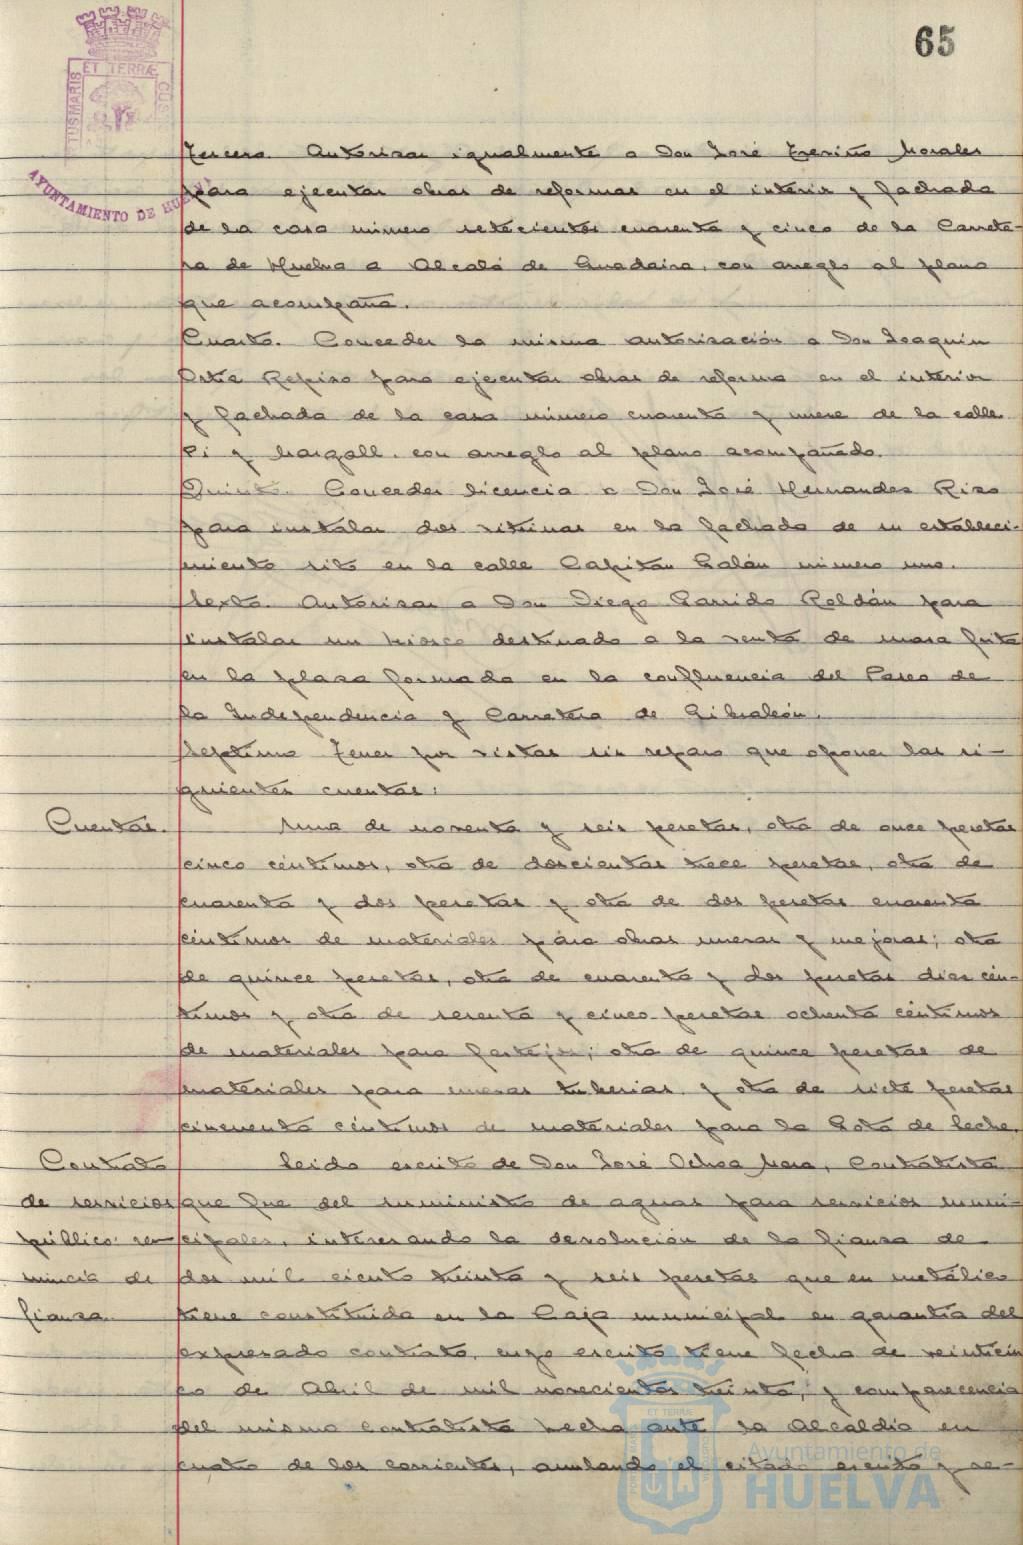 65
ET TERRÆ
TUSMARIS
CUS
AYUNTAMIENTO DE HUELVA
Tercero. Autorizar igualmente a Don José Treviño Morales
para ejecutar obras de reformas en el interior y fachada
de la casa número setecientos cuarenta y cinco de la Carrete-
ra de Huelva a Alcalá de Guadaira, con arreglo al plano
que acompaña.
Cuarto. Conceder la misma autorización a Don Joaquín
Ortiz Repiso para ejecutar obras de reforma en el interior
y fachada de la casa número cuarenta y nueve de la calle
Pi y Margall, con arreglo al plano acompañado.
Quinto. Conceder licencia a Don José Hernandez Rizo
para instalar dos vitrinas en la fachada de su estableci-
miento sito en la calle Capitán Galán número uno.
Sexto. Autorizar a Don Diego Garrido Roldán para
instalar un kiosco destinado a la venta de masa frita
en la plaza formada en la confluencia del Paseo de
la Independencia y Carretera de Gibraleón.
Séptimo Tener por vistas sin reparo que oponer las si-
guientes cuentas:
Cuentas.
Una de noventa y seis pesetas, otra de once pesetas
cinco céntimos, otra de doscientas trece pesetas, otra de
cuarenta y dos pesetas y otra de dos pesetas cuarenta
céntimos de materiales para obras nuevas y mejoras; otra
de quince pesetas, otra de cuarenta y dos pesetas diez cén-
timos y otra de sesenta y cinco pesetas ochenta céntimos
de materiales para festejos; otra de quince pesetas de
materiales para nuevas tuberias y otra de siete pesetas
cincuenta céntimos de materiales para la Gota de leche.
Contrato
de servicios
público: re-
nuncia de
fianza.
Leido escrito de Don José Ochoa Mora, Contratista
que fue del suministro de aguas para servicios muni-
cipales, interesando la devolución de la fianza de
dos mil ciento treinta y seis pesetas que en metálico
tiene constituida en la Caja municipal en garantía del
expresado contrato, cuyo escrito tiene fecha de veinticin
co de Abril de mil novecientos treinta, y comparecencia
del mismo contratista hecha ante la Alcaldía en
cuatro de los corrientes, anulando el citado escrito y re-
ET TERRÆ
Ayuntamiento de
HUELVA